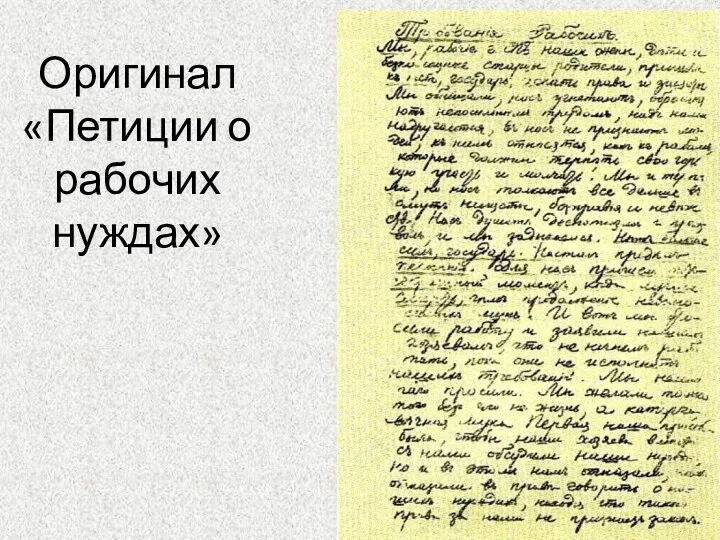 Оригинал
«Петиции о
рабочих
нуждах»
Требованія Рабочихъ.
Мы, рабочіе г. СПб наши жены, дѣти и
старцы родители, пришли
къ тебѣ, государь, искати правды и защиты
Мы обнищали, насъ угнетаютъ, обреме
няютъ непосильнымъ трудомъ, надъ нами
надругаются, въ насъ не признаютъ лю
дей, къ намъ относятся, какъ къ рабамъ,
которые должны терпѣть свою горь
кую участь и молчать! Мы и терпѣ
ли, но насъ толкаютъ все дальше въ
омутъ нищеты, безправія и невѣже
Насъ душитъ деспотизмъ и произ
волъ, и мы задыхаемся. Нѣтъ больше
силъ, государь. Насталъ предѣлъ
терпѣнія. Для насъ пришелъ
моментъ, когда лучше
смерть, чѣмъ продолженіе невыно
мукъ. И вотъ мы бро
сили работу и заявили нашимъ
хозяевамъ, что не начнемъ рабо
тать, пока они не исполнятъ
нашихъ требованій. Мы немно
гаго просили. Мы желали только
того безъ чего не жизнь, а каторга
вѣчная мука. Первая наша просьба
была, чтобы наши хозяева вмѣстѣ
съ нами обсудили наши нужды
но и въ этомъ намъ отказали, намъ
отказали въ правѣ говорить о на
шихъ нуждахъ, находя что такого
права за нами не признаетъ законъ.